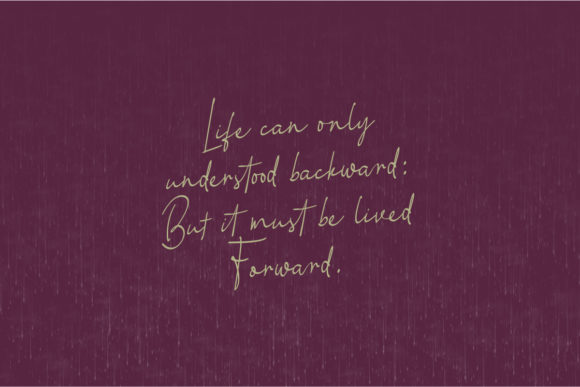 Life can only
understood backward:
But it must be lived
Forward.